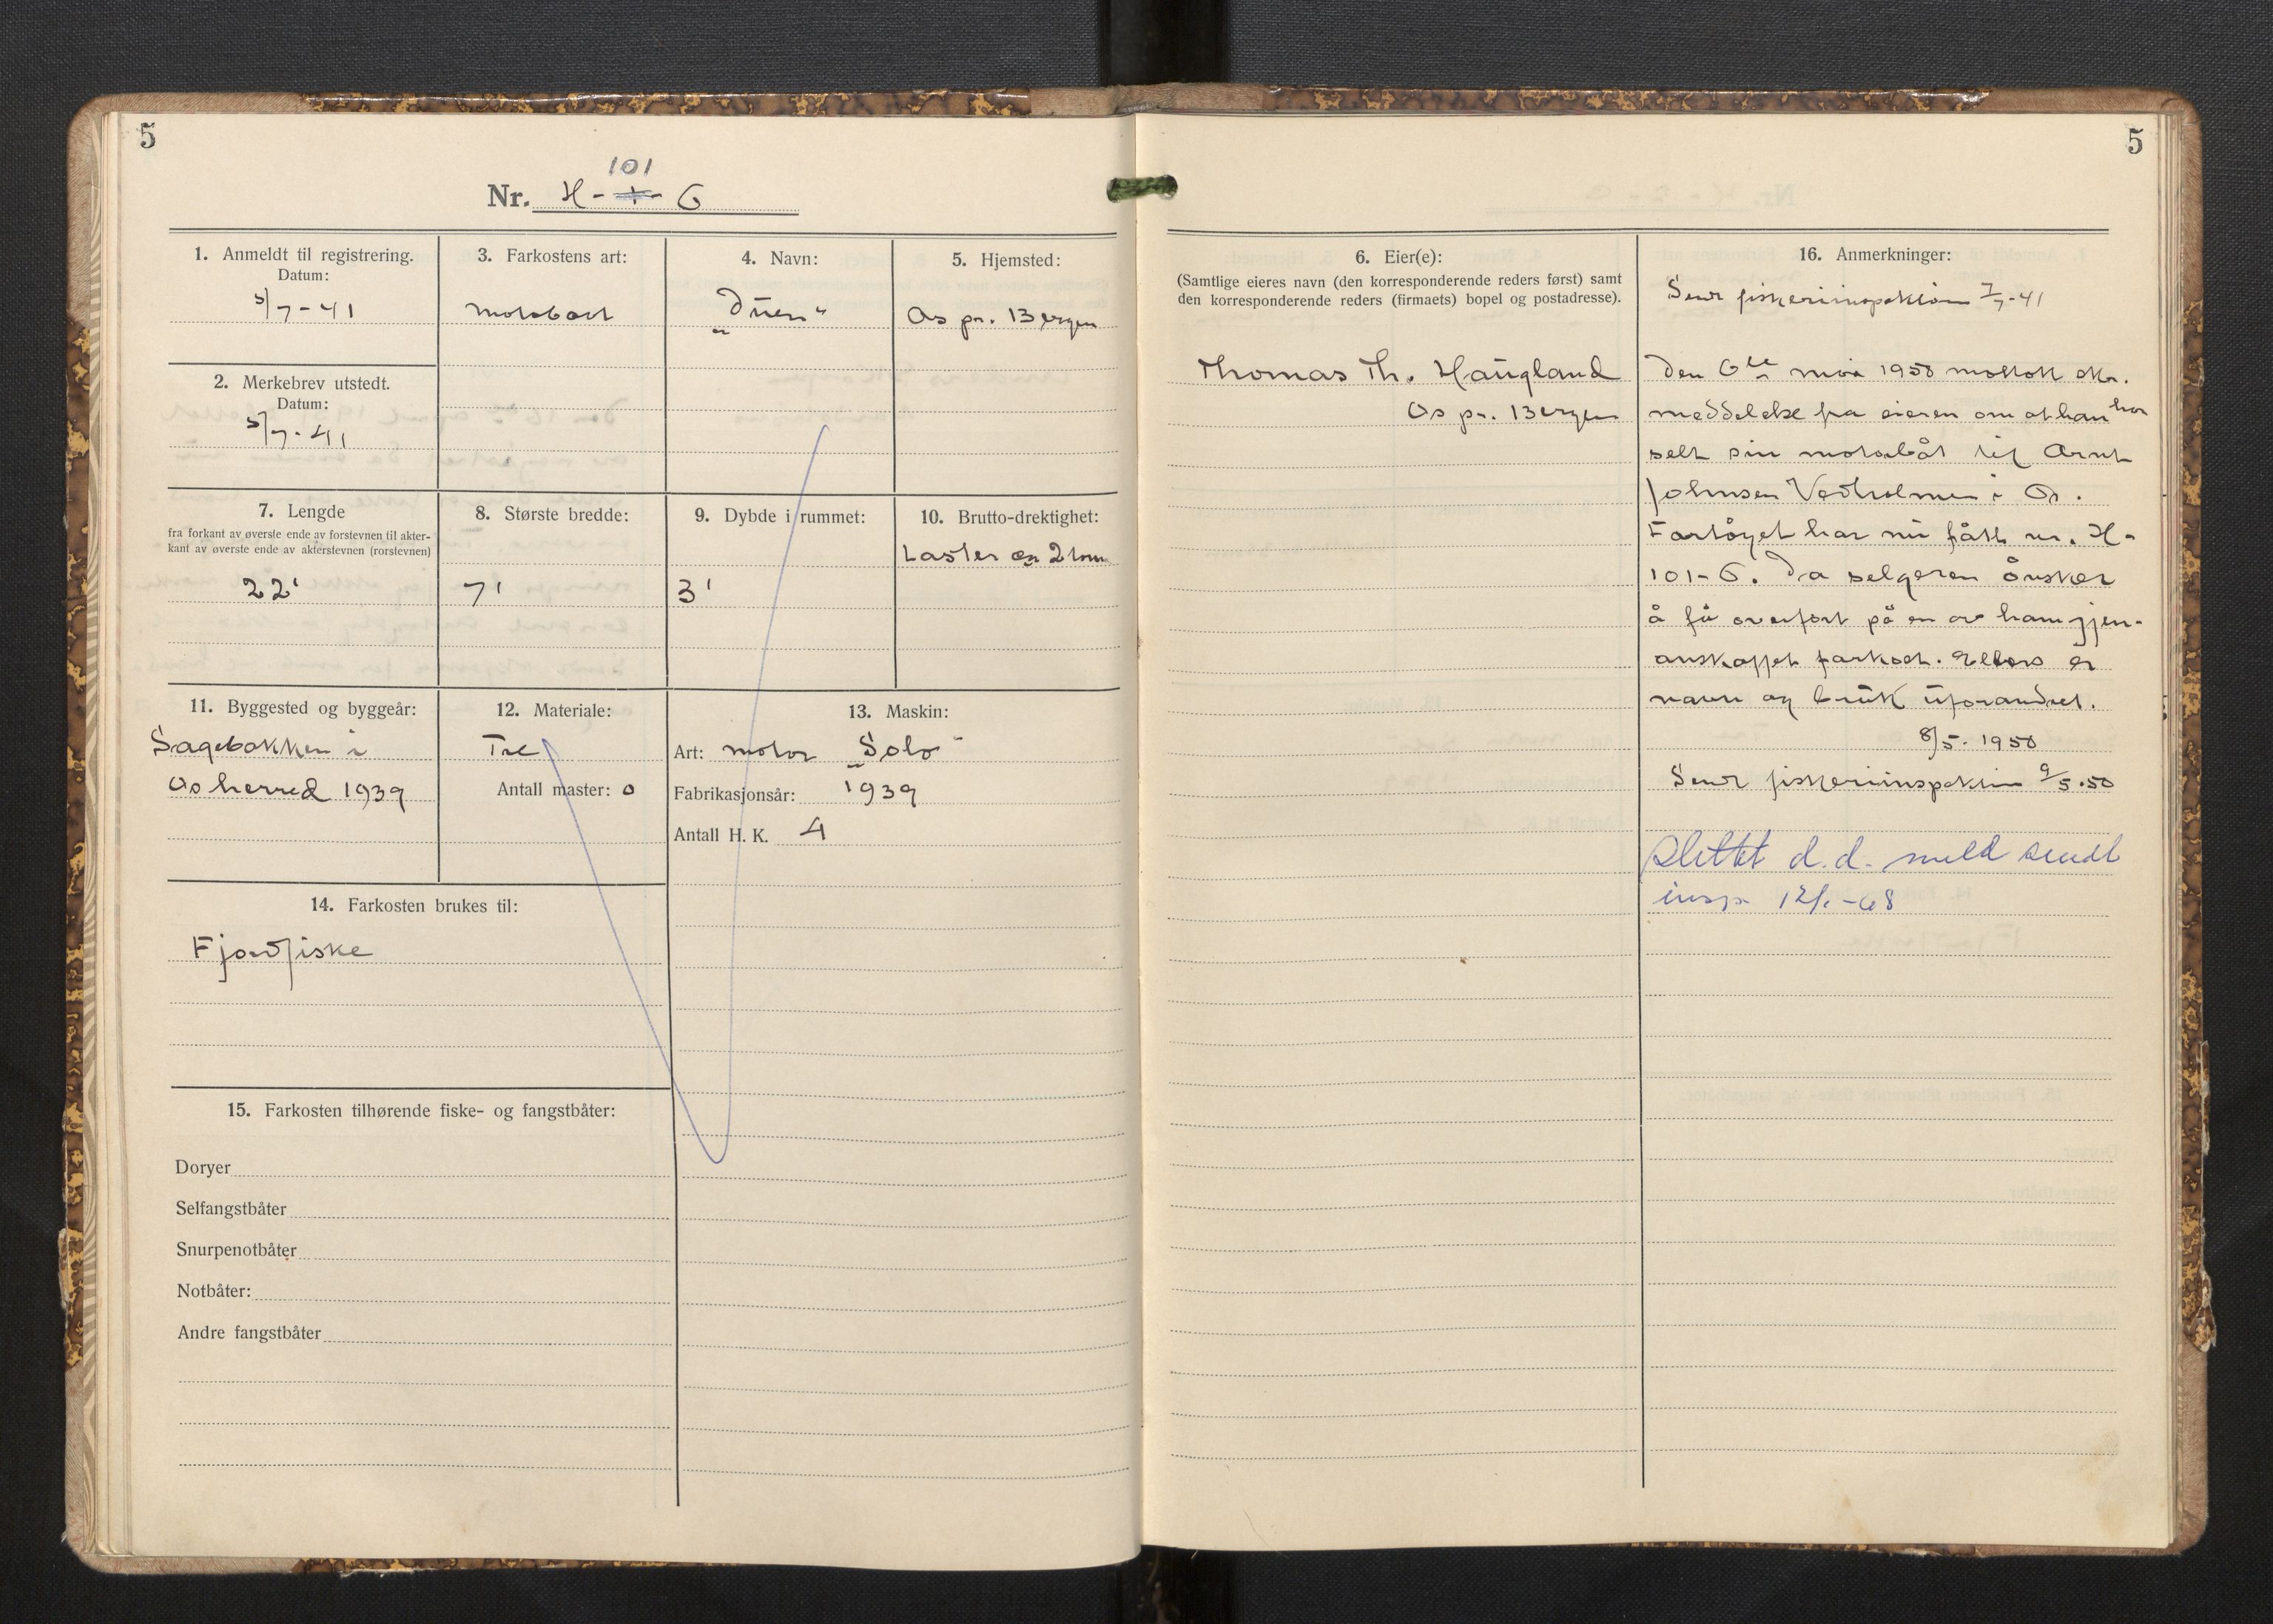 5
5
101
Nr. H-1-G
1. Anmeldt til registrering.
Datum:
5/7-41
2. Merkebrev utstedt.
Datum:
5/7-41
3. Farkostens art:
motorbåt
4. Navn:
„Duen"
5. Hjemsted:
Os pr. Bergen
7. Lengde
fra forkant av øverste ende av forstevnen til akter-
kant av øverste ende av akterstevnen (rorstevnen)
22'
8. Største bredde:
7'
9. Dybde i rummet:
3'
10. Brutto-drektighet:
Laster ca 2 tonn
11. Byggested og byggeår:
Sagebakken i
Os herred 1939
12. Materiale:
Tre
Antall master: 0
13. Maskin:
Art: motor „Solo"
Fabrikasjonsår: 1939
Antall H. K. 4
14. Farkosten brukes til:
Fjordfiske
15. Farkosten tilhørende fiske- og fangstbåter:
Doryer
Selfangstbåter
Snurpenotbåter
Notbåter:
Andre fangstbåter
6. Eier(e):
(Samtlige eieres navn (den korresponderende reders først) samt
den korresponderende reders (firmaets) bopel og postadresse).
Thomas Th. Haugland
Os pr. Bergen
16. Anmerkninger:
Sendt fiskeriinspektøren 7/7-41
Den 6te mai 1950 mottok
meddelelse fra eieren om at han har
selt sin motorbåt til Arnt
Johnsen i Os.
Fartøyet har nu fått nr. H-
101-G. Da selgeren ønsker
å få overført på en av ham gjen-
anskaffet farkost. Ellers er
navn og bruk uforandret.
8/5. 1950
Sendt fiskeriinspektøren 9/5.50
Slettet d.d. meld sendt
insp. 12/1-68